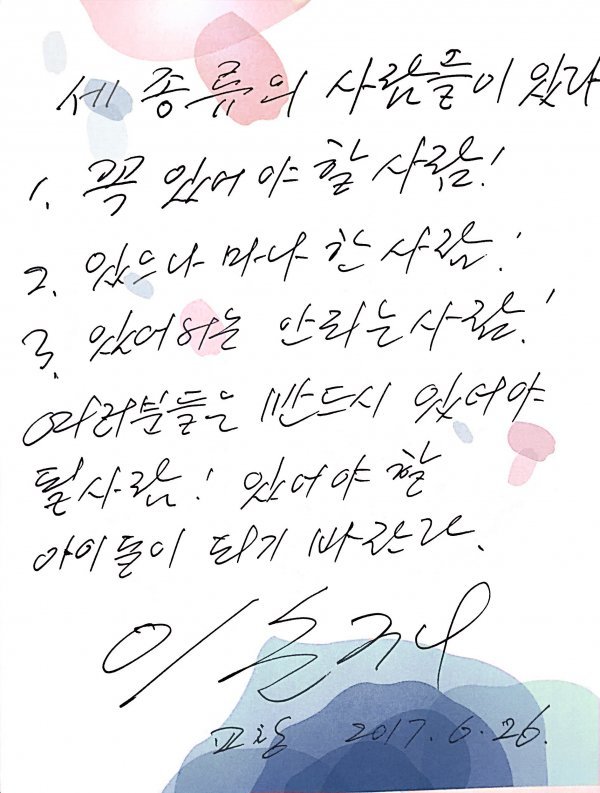 세 종류의 사람들이 있다
1. 꼭 있어야 할 사람!
2. 있으나 마나 한 사람!
3. 있어서는 안되는 사람!
여러분들은 반드시 있어야
될사람! 있어야 할
아이들이 되기 바란다.
이순재
교장 2017. 6. 26.